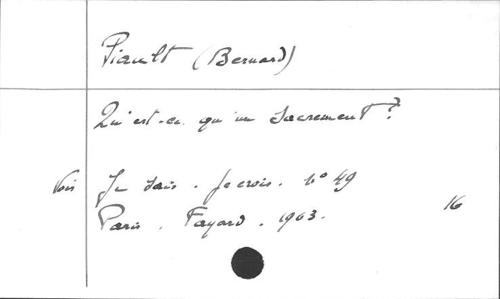 Piault (Bernard)
Qu'est-ce qu'un Sacrement ?
Voir Je sais . Je crois . n° 49
Paris . Fayard . 1963. 16